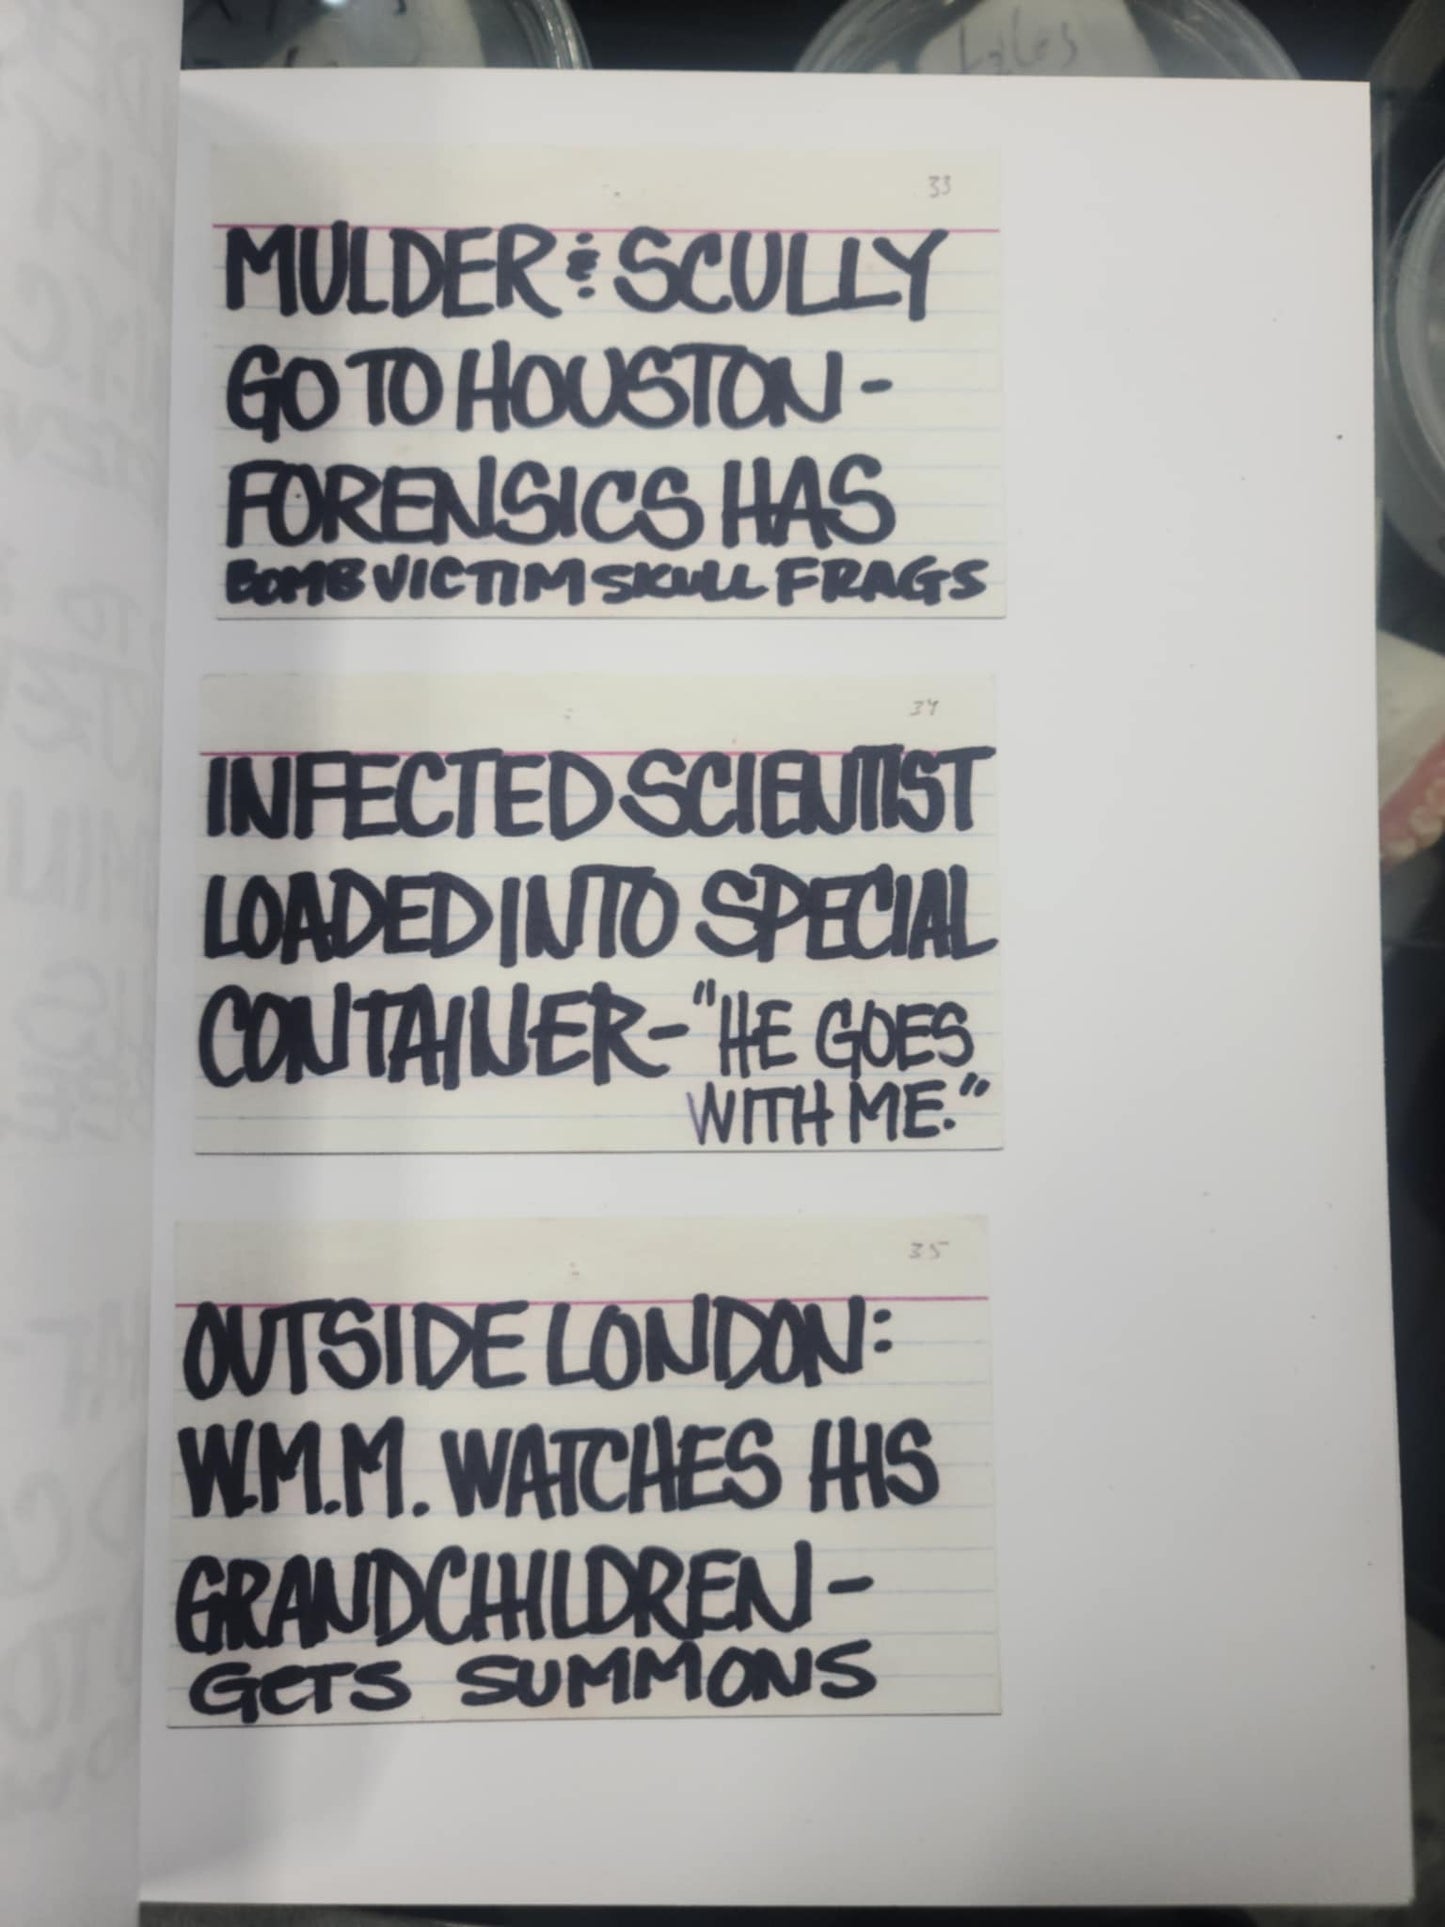 Lyles
33
MULDER & SCULLY
GO TO HOUSTON -
FORENSICS HAS
BOMB VICTIM SKULL FRAGS
34
INFECTED SCIENTIST
LOADED INTO SPECIAL
CONTAINER - "HE GOES
WITH ME."
35
OUTSIDE LONDON:
W.M.M. WATCHES HIS
GRANDCHILDREN -
GETS SUMMONS